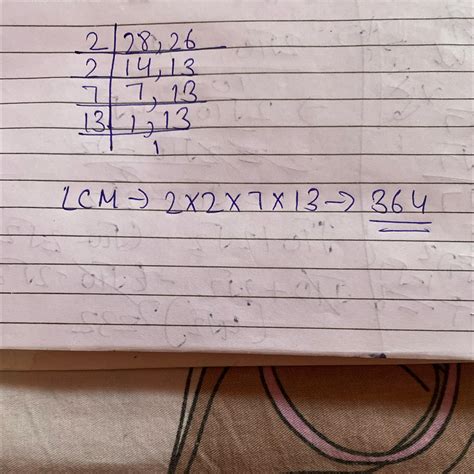 2 | 28, 26
2 | 14, 13
7 | 7, 13
13 | 1, 13
1
LCM → 2×2×7×13 → 364